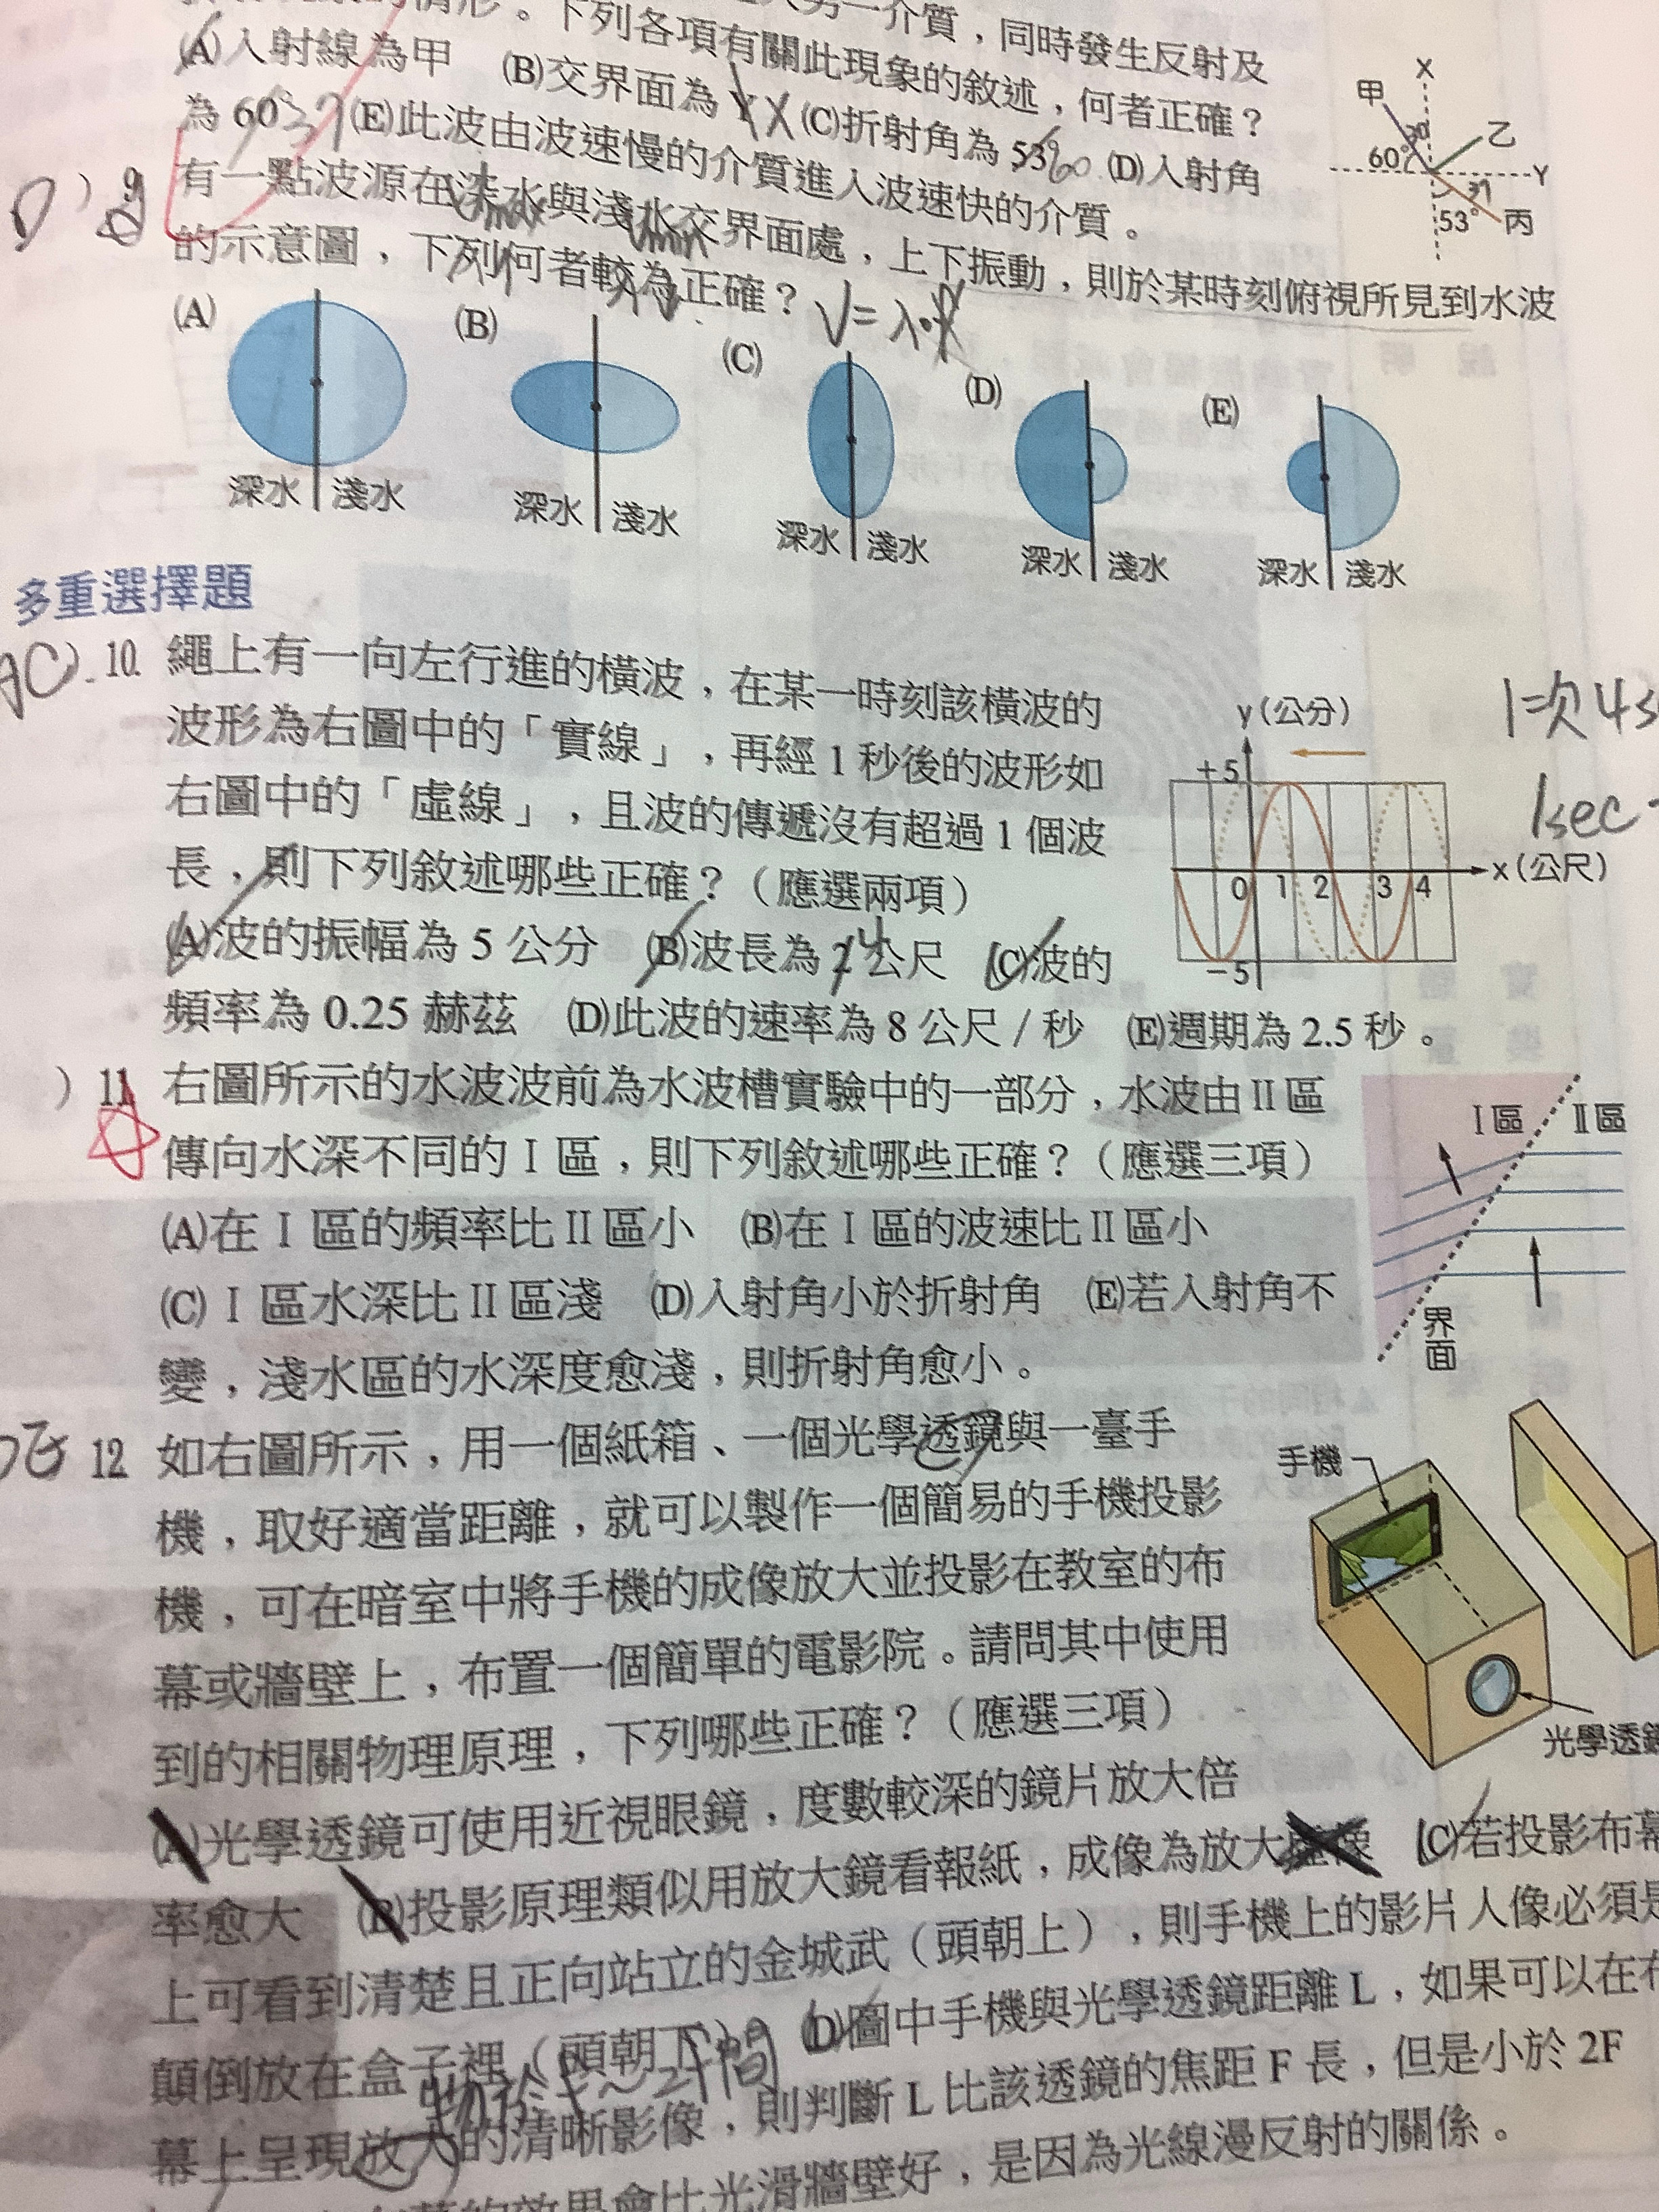 。下列各項有關此現象的敘述，何者正確？
另一介質，同時發生反射及
(A)入射線為甲 (B)交界面為 Y X (C)折射角為 53° 60 (D)入射角
為 60° 37 (E)此波由波速慢的介質進入波速快的介質。
X
甲
30
乙
60°
Y
37
53°
丙
D ) 9 有一點波源在深水與淺水交界面處，上下振動，則於某時刻俯視所見到水波
的示意圖，下列何者較為正確？ V=λ·f
(A) (B) (C) (D) (E)
深水 淺水 深水 淺水 深水 淺水 深水 淺水 深水 淺水
多重選擇題
AC). 10. 繩上有一向左行進的橫波，在某一時刻該橫波的
波形為右圖中的「實線」，再經 1 秒後的波形如
右圖中的「虛線」，且波的傳遞沒有超過 1 個波
長，則下列敘述哪些正確？（應選兩項）
(A)波的振幅為 5 公分 (B)波長為 2 公尺 (C)波的
頻率為 0.25 赫茲 (D)此波的速率為 8 公尺 / 秒 (E)週期為 2.5 秒。
y (公分)
+5
0 1 2 3 4 x (公尺)
−5
1次4s
1sec
) 11 右圖所示的水波波前為水波槽實驗中的一部分，水波由 II 區
傳向水深不同的 I 區，則下列敘述哪些正確？（應選三項）
(A)在 I 區的頻率比 II 區小 (B)在 I 區的波速比 II 區小
(C) I 區水深比 II 區淺 (D)入射角小於折射角 (E)若入射角不
變，淺水區的水深度愈淺，則折射角愈小。
I 區 II 區
界面
DE 12 如右圖所示，用一個紙箱、一個光學透鏡與一臺手
機，取好適當距離，就可以製作一個簡易的手機投影
機，可在暗室中將手機的成像放大並投影在教室的布
幕或牆壁上，布置一個簡單的電影院。請問其中使用
到的相關物理原理，下列哪些正確？（應選三項）
手機
光學透鏡
(A)光學透鏡可使用近視眼鏡，度數較深的鏡片放大倍
率愈大 (B)投影原理類似用放大鏡看報紙，成像為放大虛像 (C)若投影布幕
上可看到清楚且正向站立的金城武（頭朝上），則手機上的影片人像必須是
顛倒放在盒子裡（頭朝下） (D)圖中手機與光學透鏡距離 L，如果可以在布
幕上呈現放大的清晰影像，則判斷 L 比該透鏡的焦距 F 長，但是小於 2F
物於 F～2F間
的效果會比光滑牆壁好，是因為光線漫反射的關係。